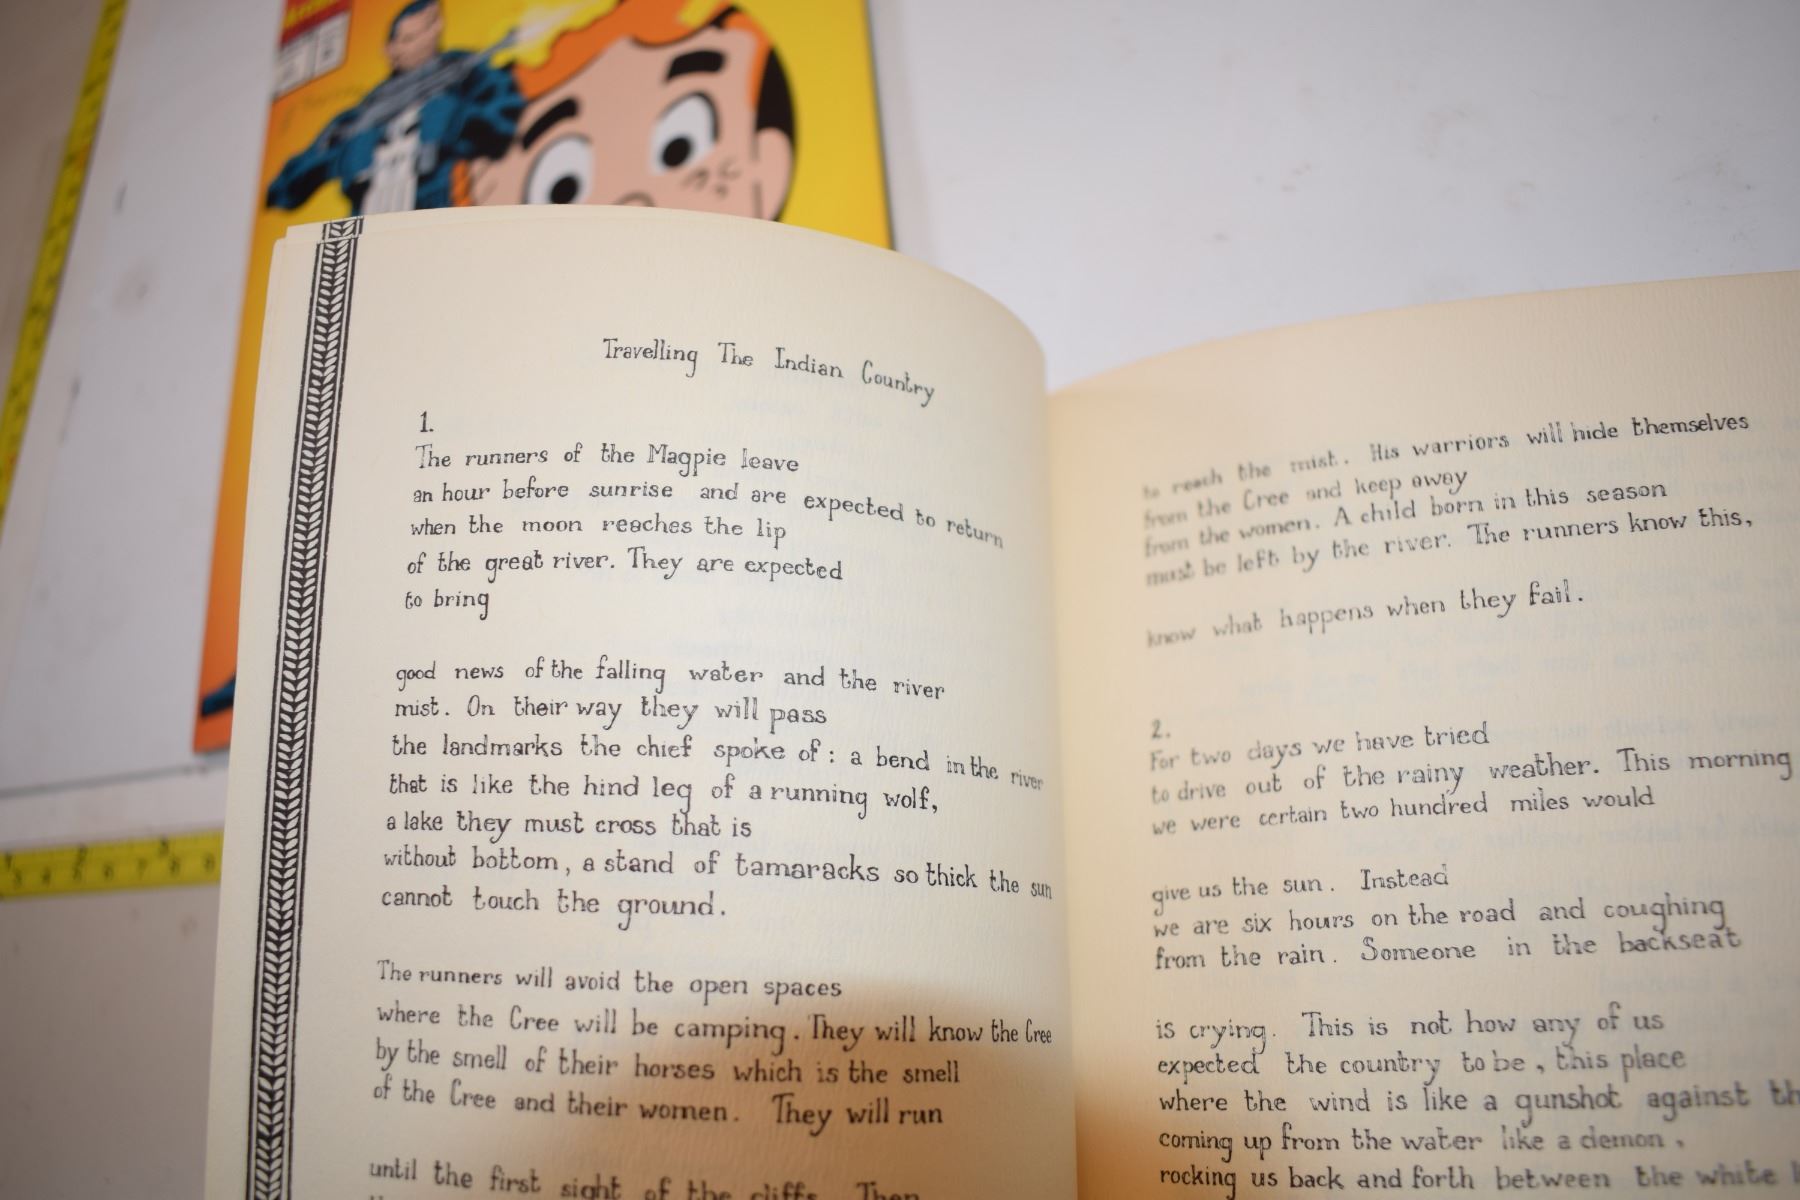 Travelling The Indian Country
1.
The runners of the Magpie leave
an hour before sunrise and are expected to return
when the moon reaches the lip
of the great river. They are expected
to bring
good news of the falling water and the river
mist. On their way they will pass
the landmarks the chief spoke of: a bend in the river
that is like the hind leg of a running wolf,
a lake they must cross that is
without bottom, a stand of tamaracks so thick the sun
cannot touch the ground.
The runners will avoid the open spaces
where the Cree will be camping. They will know the Cree
by the smell of their horses which is the smell
of the Cree and their women. They will run
until the first sight of the cliffs. Then
to reach the mist. His warriors will hide themselves
from the Cree and keep away
from the women. A child born in this season
must be left by the river. The runners know this,
know what happens when they fail.
2.
For two days we have tried
to drive out of the rainy weather. This morning
we were certain two hundred miles would
give us the sun. Instead
we are six hours on the road and coughing
from the rain. Someone in the backseat
is crying. This is not how any of us
expected the country to be, this place
where the wind is like a gunshot against
coming up from the water like a demon,
rocking us back and forth between the white